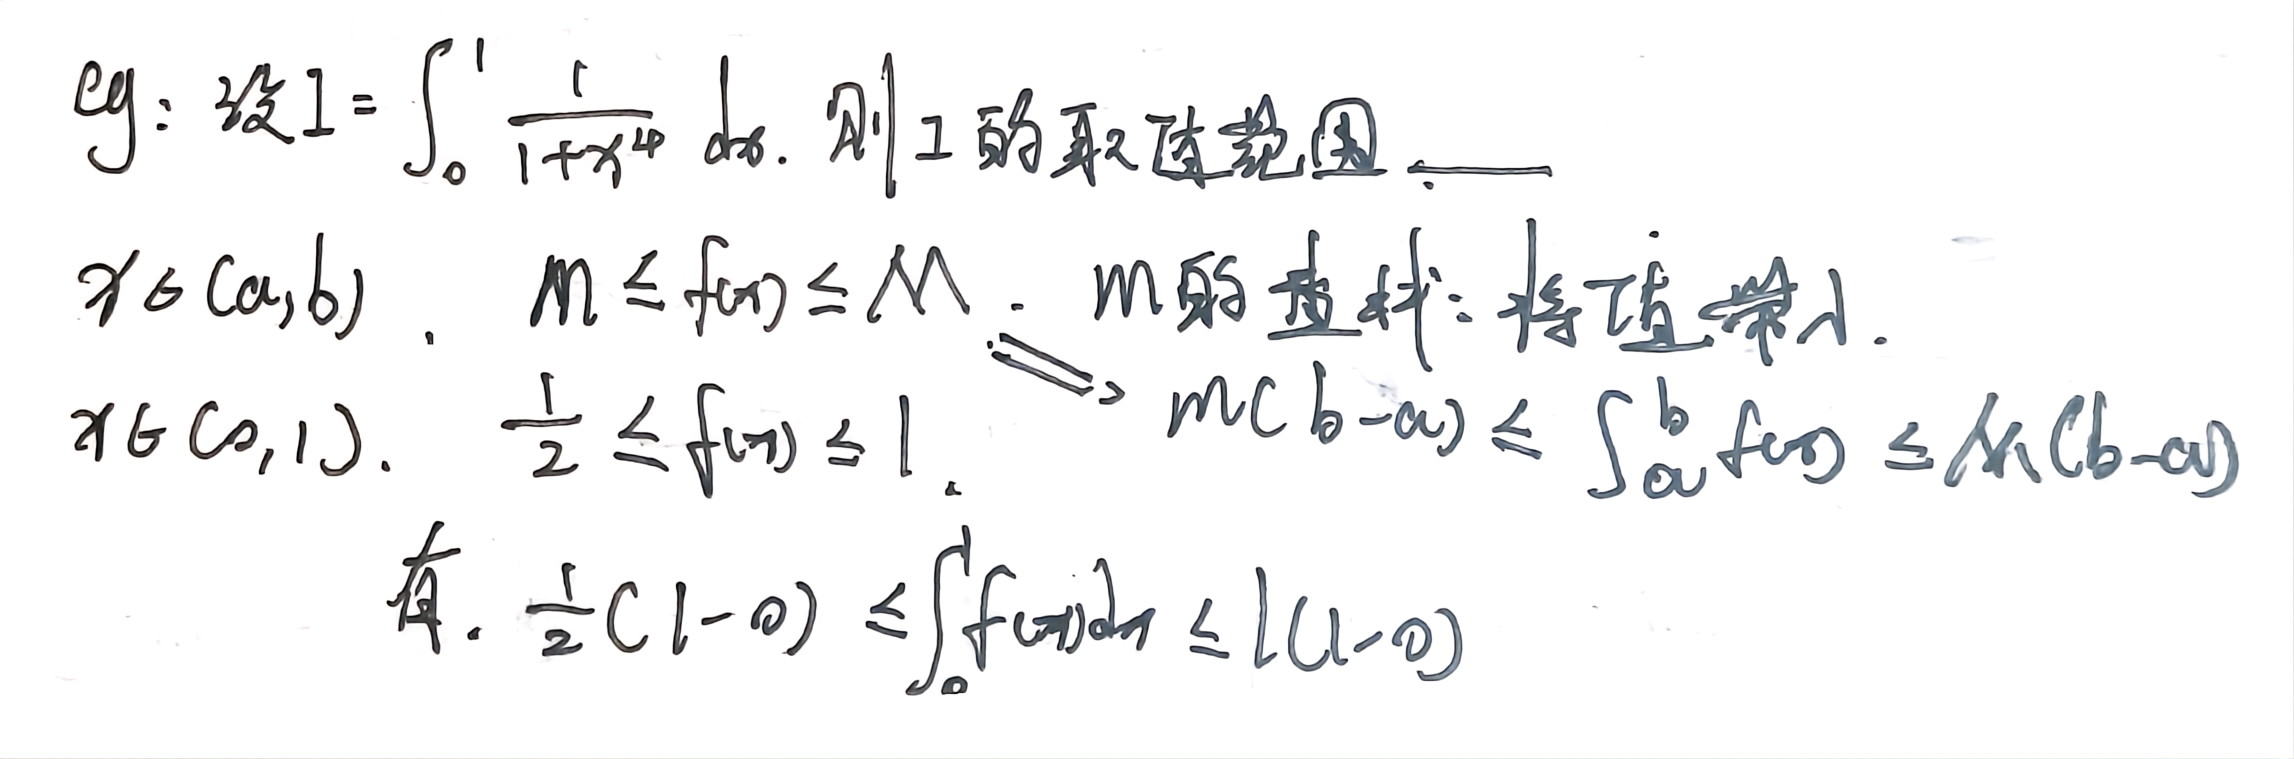 eg: 设I=∫₀¹ 1/(1+x⁴) dx. 则I的取值范围____
x∈(a,b). m≤f(x)≤M. m的查找:将值带入.
x∈(0,1). 1/2≤f(x)≤1. ⇒ m(b-a)≤∫ₐᵇf(x)≤M(b-a)
有. 1/2(1-0)≤∫₀¹f(x)dx≤1(1-0)